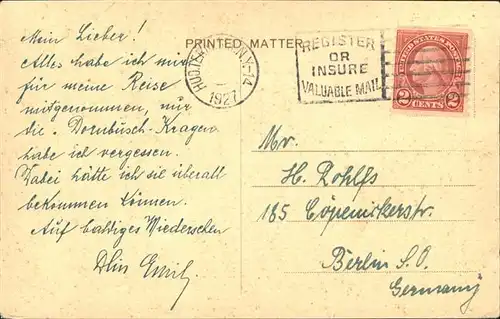 Mein Lieber!
Alles habe ich mir
für meine Reise
mitgenommen, nur
die Dornbusch-Kragen
habe ich vergessen.
Dabei hätte ich sie überall
bekommen können.
Auf baldiges Wiedersehen
Emil
PRINTED MATTER
N.Y. 14
1927
REGISTER
OR
INSURE
VALUABLE MAIL
UNITED STATES POSTAGE
2 CENTS 2
Mr.
H. Rohlfs
185 Cöpenickerstr.
Berlin S.O.
Germany